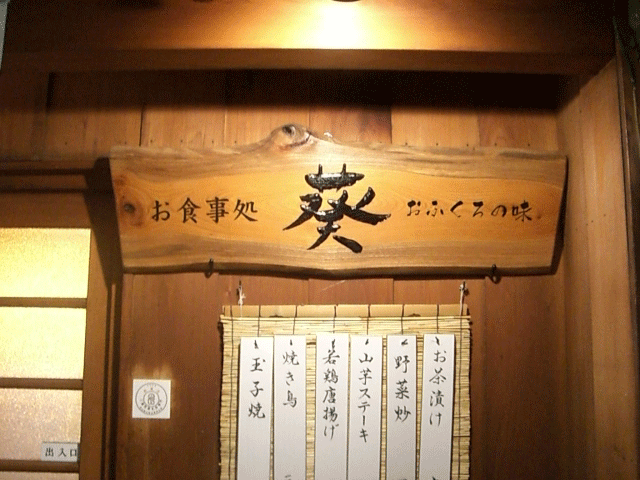 お食事処 葵 おふくろの味
お茶漬け
野菜炒
山芋ステーキ
若鶏唐揚げ
焼き鳥
玉子焼
出入口